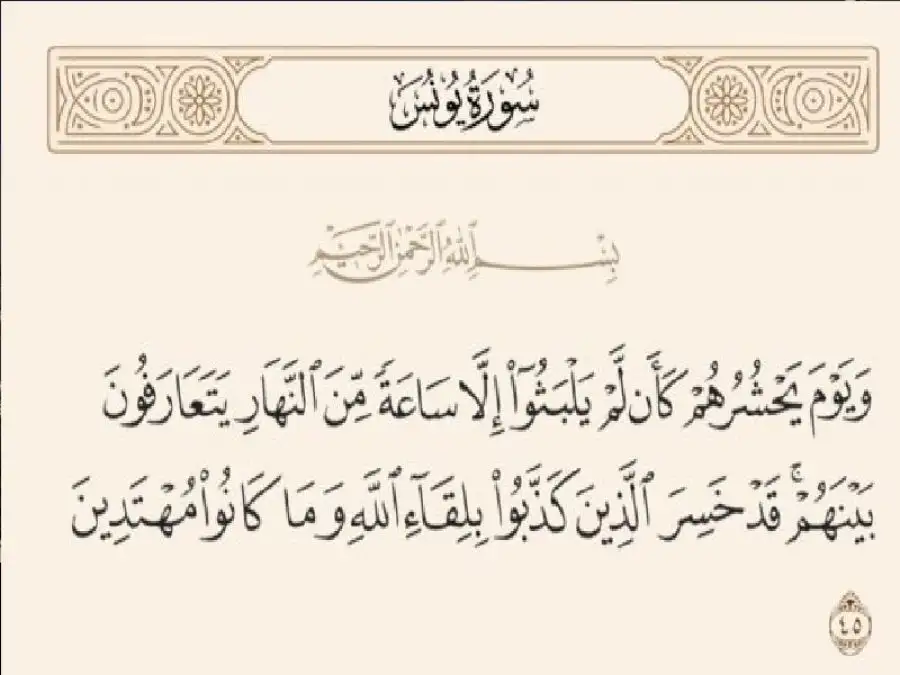 سُورَةُ يُونُسَ
بِسْمِ ٱللَّهِ ٱلرَّحْمَٰنِ ٱلرَّحِيمِ
وَيَوْمَ يَحْشُرُهُمْ كَأَن لَّمْ يَلْبَثُوٓا۟ إِلَّا سَاعَةً مِّنَ ٱلنَّهَارِ يَتَعَارَفُونَ
بَيْنَهُمْ ۚ قَدْ خَسِرَ ٱلَّذِينَ كَذَّبُوا۟ بِلِقَآءِ ٱللَّهِ وَمَا كَانُوا۟ مُهْتَدِينَ
٤٥